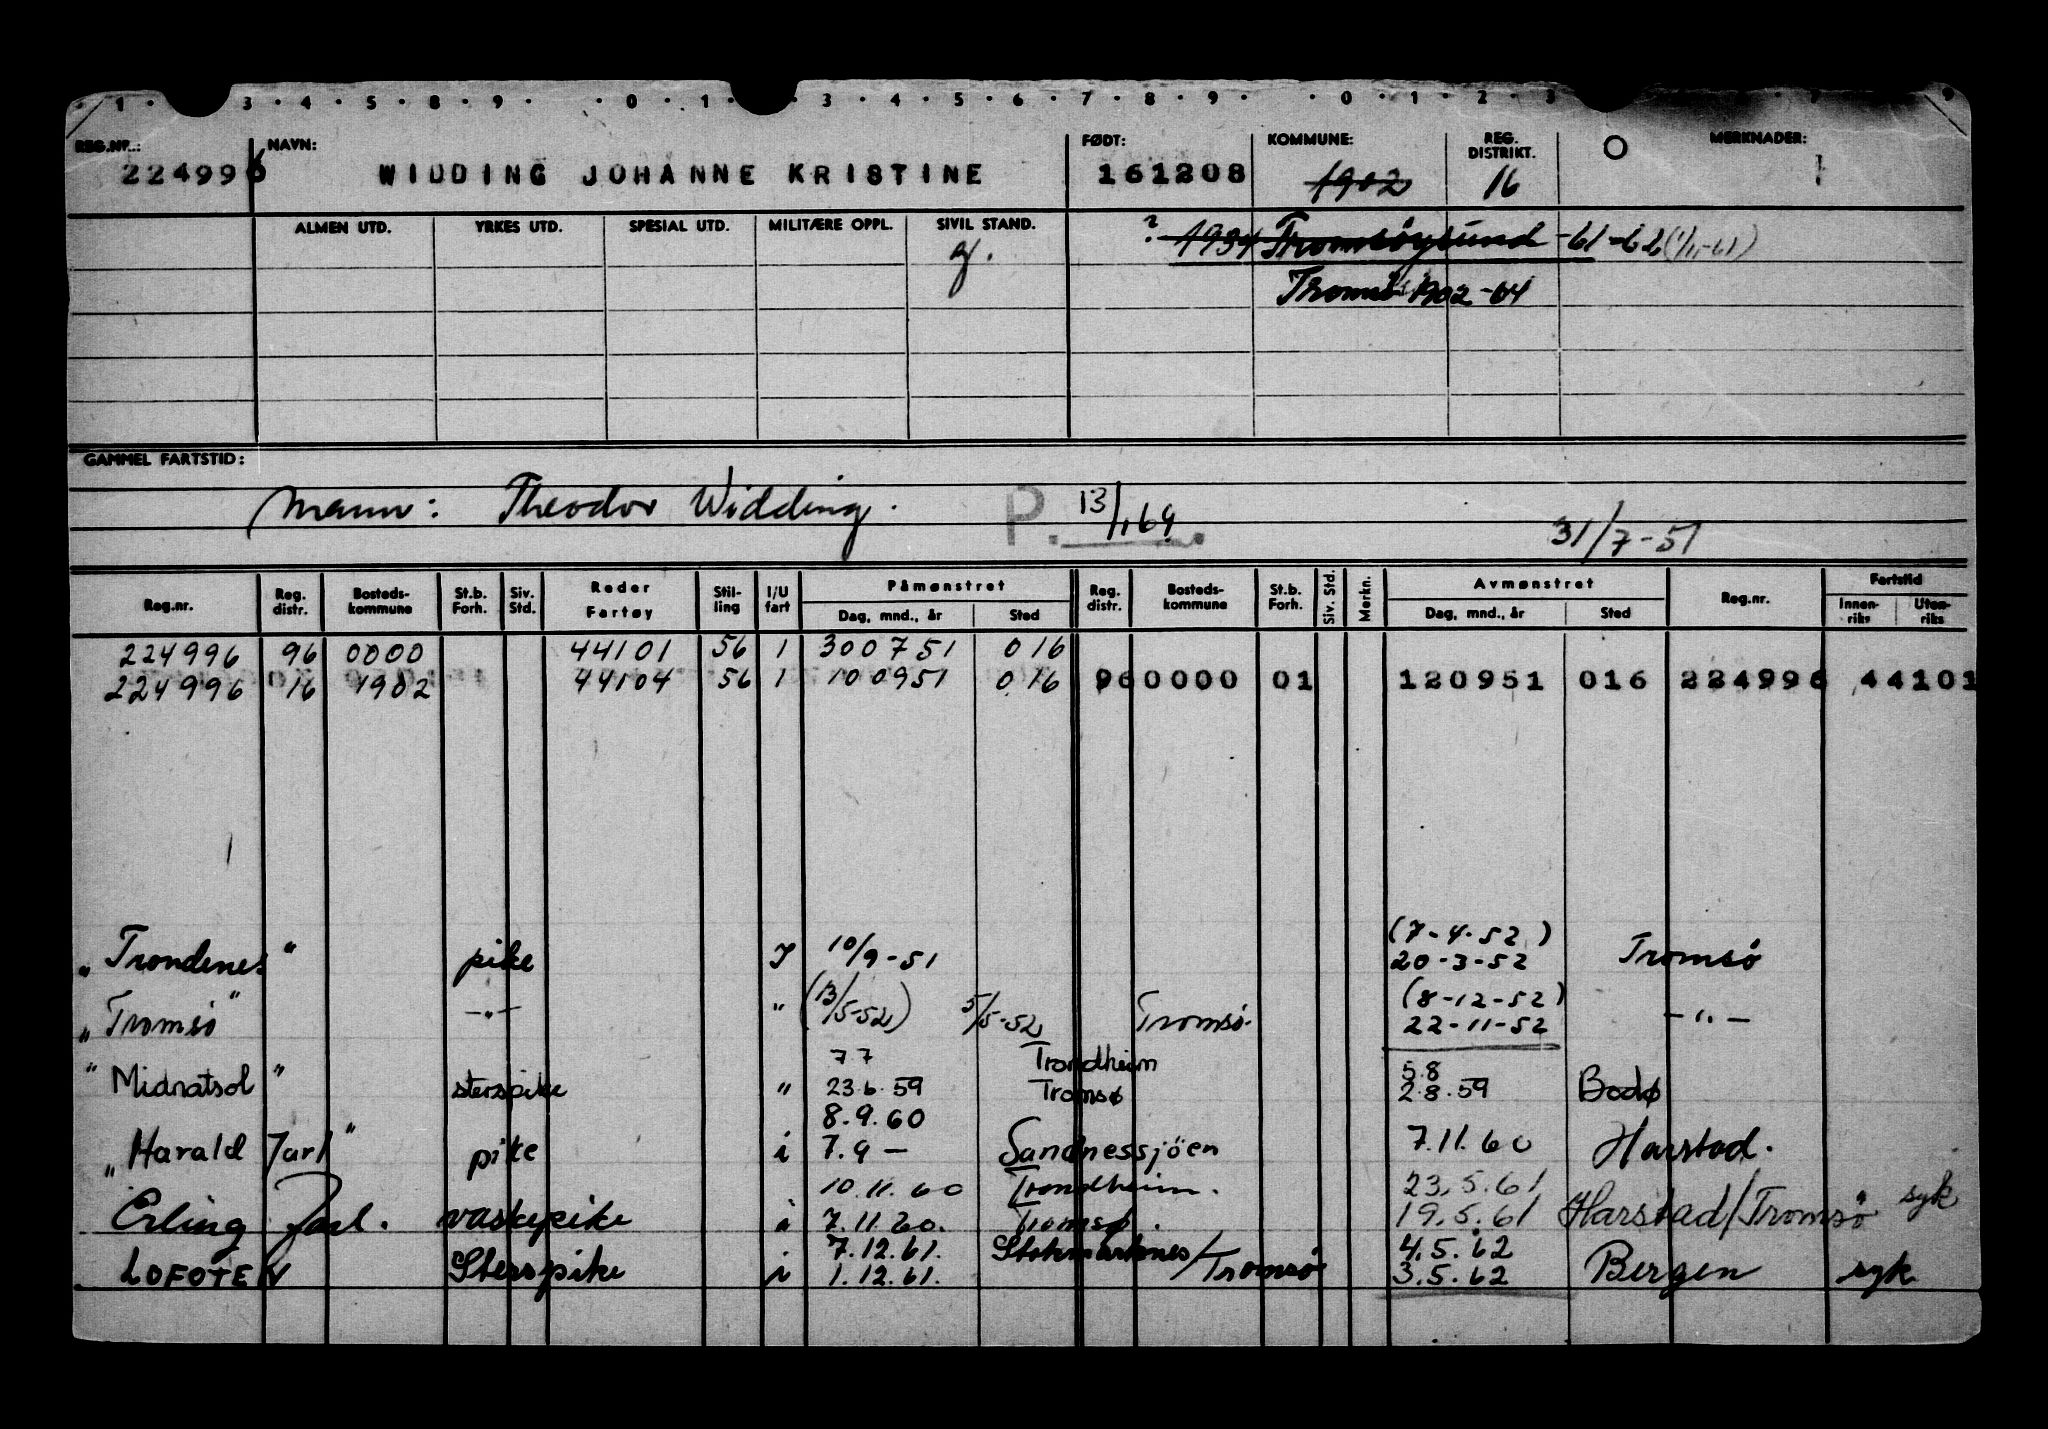 1 3 4 5 8 9 0 1 3 4 5 6 7 8 9 0 1 2 3 7 9
REG.NR.: NAVN: FØDT: KOMMUNE: REG. DISTRIKT. MERKNADER:
224996 WIDDING JOHANNE KRISTINE 161208 1902 16
ALMEN UTD. YRKES UTD. SPESIAL UTD. MILITÆRE OPPL. SIVIL STAND.
g. ? 1934 Tromsöysund -61-62 (1/11-61)
Tromsö 1902-64
GAMMEL FARTSTID:
Mann: Theodor Widding. P. 13/1 64
31/7-51
Reg.nr. Reg. distr. Bosteds-kommune St.b. Forh. Siv. Std. Reder Fartøy Stil-ling I/U fart Påmønstret Dag, mnd., år Sted Reg. distr. Bosteds-kommune St.b. Forh. Siv. Std. Merkn. Avmønstret Dag, mnd., år Sted Reg.nr. Fartstid Innen-riks Uten-riks
224996 96 0000 44101 56 1 300751 016
224996 16 1902 44104 56 1 100951 016 960000 01 120951 016 224996 44101
(7-4-52)
"Trondenes" pike I 10/9-51 20-3-52 Tromsø
(8-12-52)
"Tromsö" -"- " (13/5-52) 5/5-52 Tromsø. 22-11-52 -"-
77 Trondheim 5.8
"Midnatsol" sterspike " 23.6.59 Tromsø 2.8.59 Bodø
8.9.60
"Harald Jarl" pike i 7.9 - Sandnessjöen 7.11.60 Harstad.
10.11.60 Trondheim. 23.5.61
Erling Jarl. vaskepike i 7.11.60. Tromsø. 19.5.61 Harstad/Tromsø syk
7.12.61. Stokmarknes/Tromsø 4.5.62
LOFOTEN Sterspike i 1.12.61. 3.5.62 Bergen syk